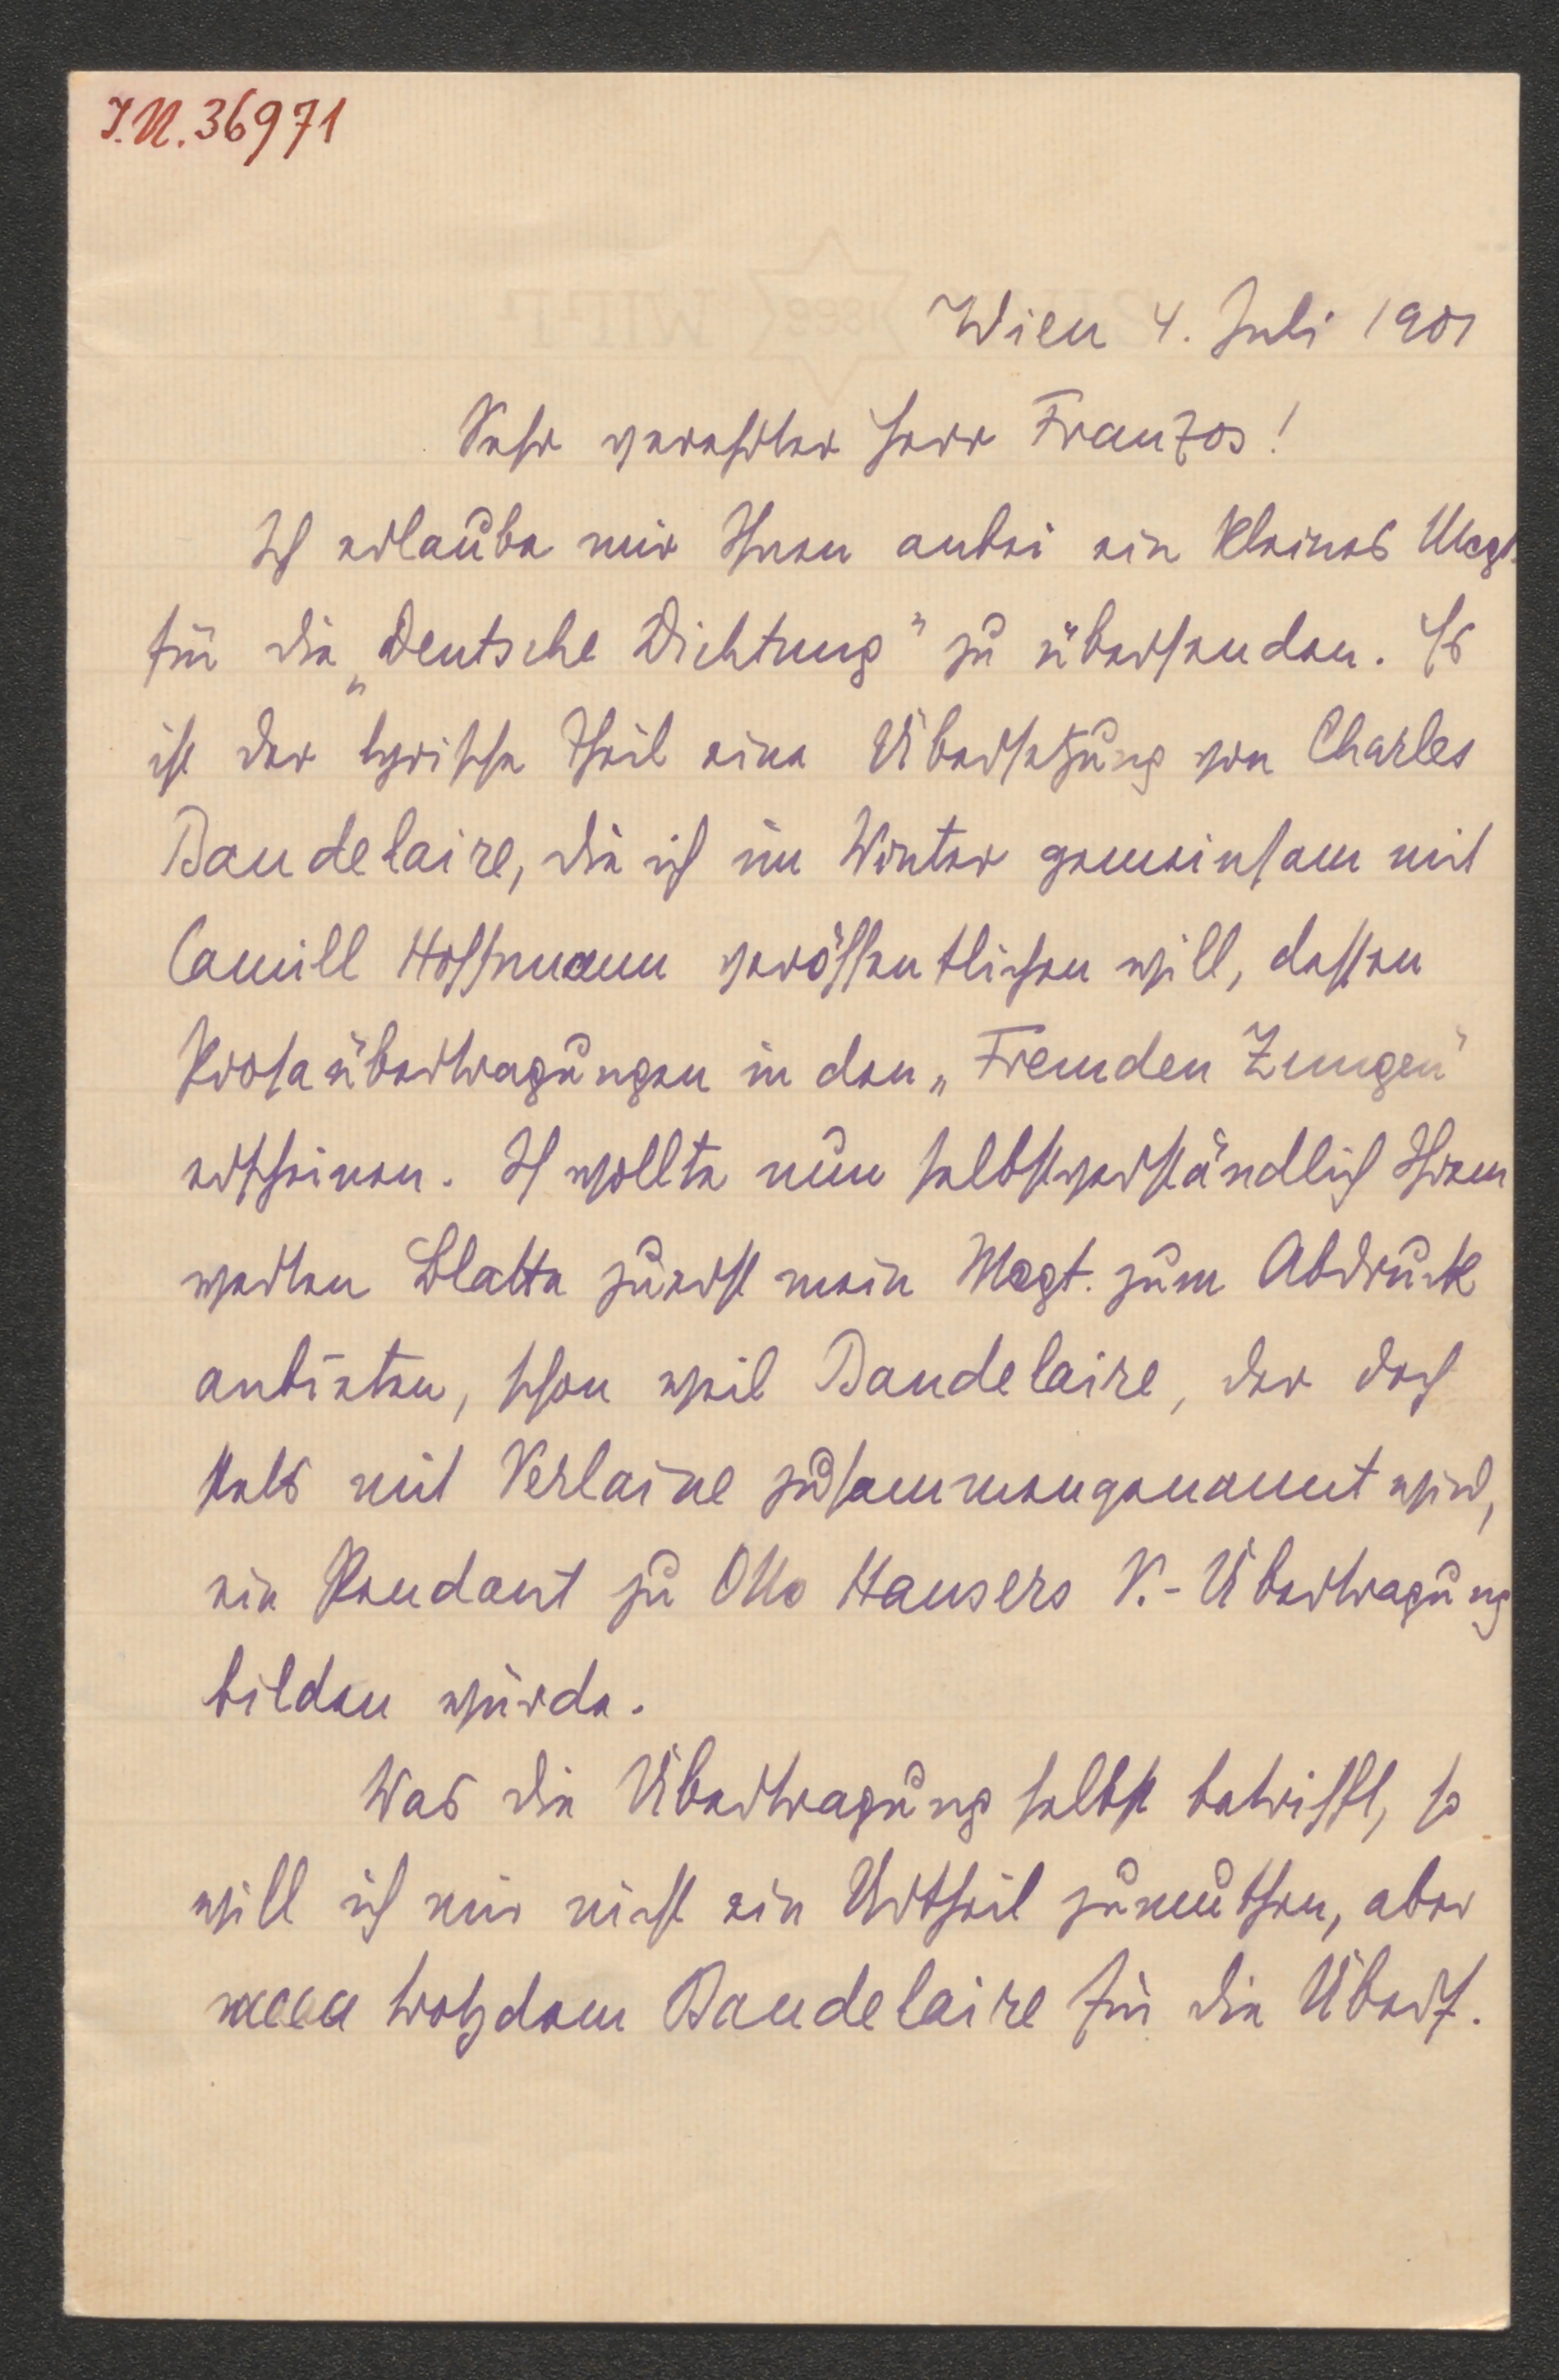 I.N. 36971
Wien 4. Juli 1901
Sehr verehrter Herr Franzos!
Ich erlaube mir Ihnen anbei ein kleines Mcgt.
für die „Deutsche Dichtung" zu übersenden. Es
ist der lyrische Theil einer Übersetzung von Charles
Baudelaire, die ich im Winter gemeinsam mit
Camill Hoffmann veröffentlichen will, dessen
Prosaübertragungen in den „Fremden Zungen"
erscheinen. Ich wollte nun selbstverständlich Ihrem
werten Blatte zuerst mein Mcgt. zum Abdruck
anbieten, schon weil Baudelaire, der doch
stets mit Verlaine zusammengenannt wird,
ein Pendant zu Otto Hausers V.-Übertragung
bilden würde.
Was die Übertragung selbst betrifft, so
will ich mir nicht ein Urtheil zumuthen, aber
trotzdem Baudelaire für die Übers.